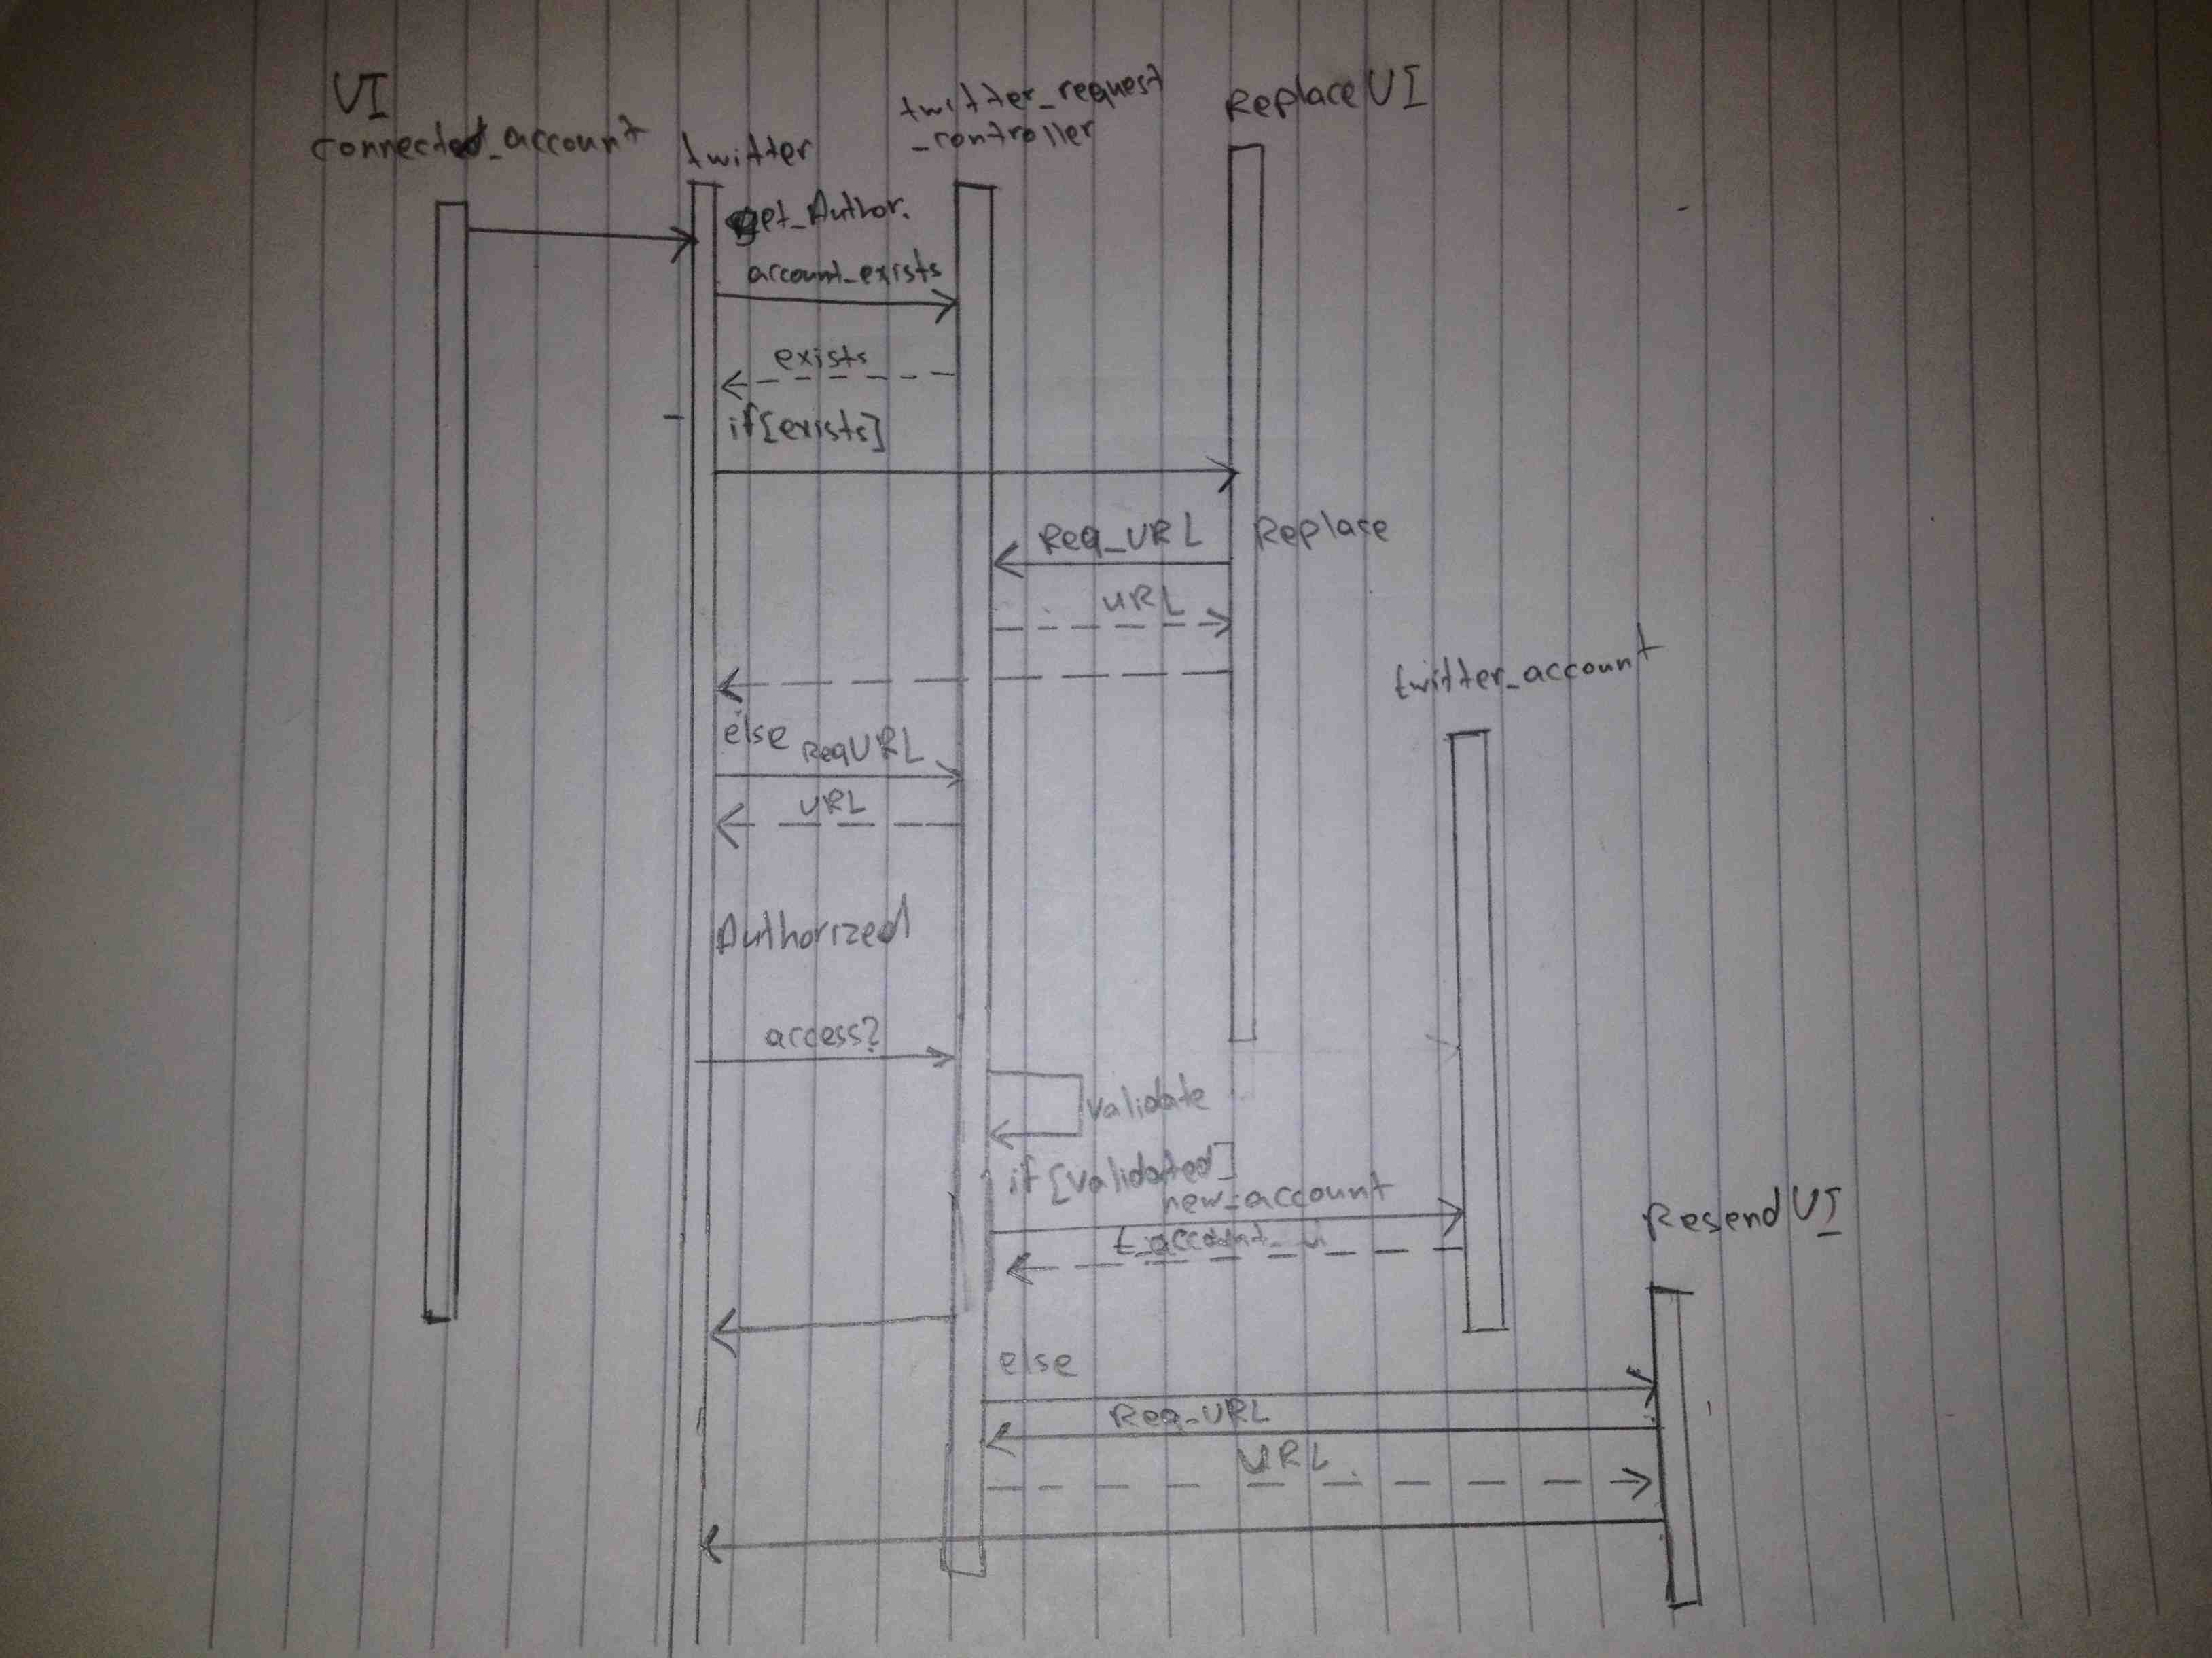 UI
connected_account
twitter
twitter_request
_controller
ReplaceUI
get_Author.
account_exists
exists
if[exists]
Req_URL
Replace
URL
twitter_account
else
ReqURL
URL
Authorized
access?
validate
if [validated]
new_account
ResendUI
else
Req_URL
URL